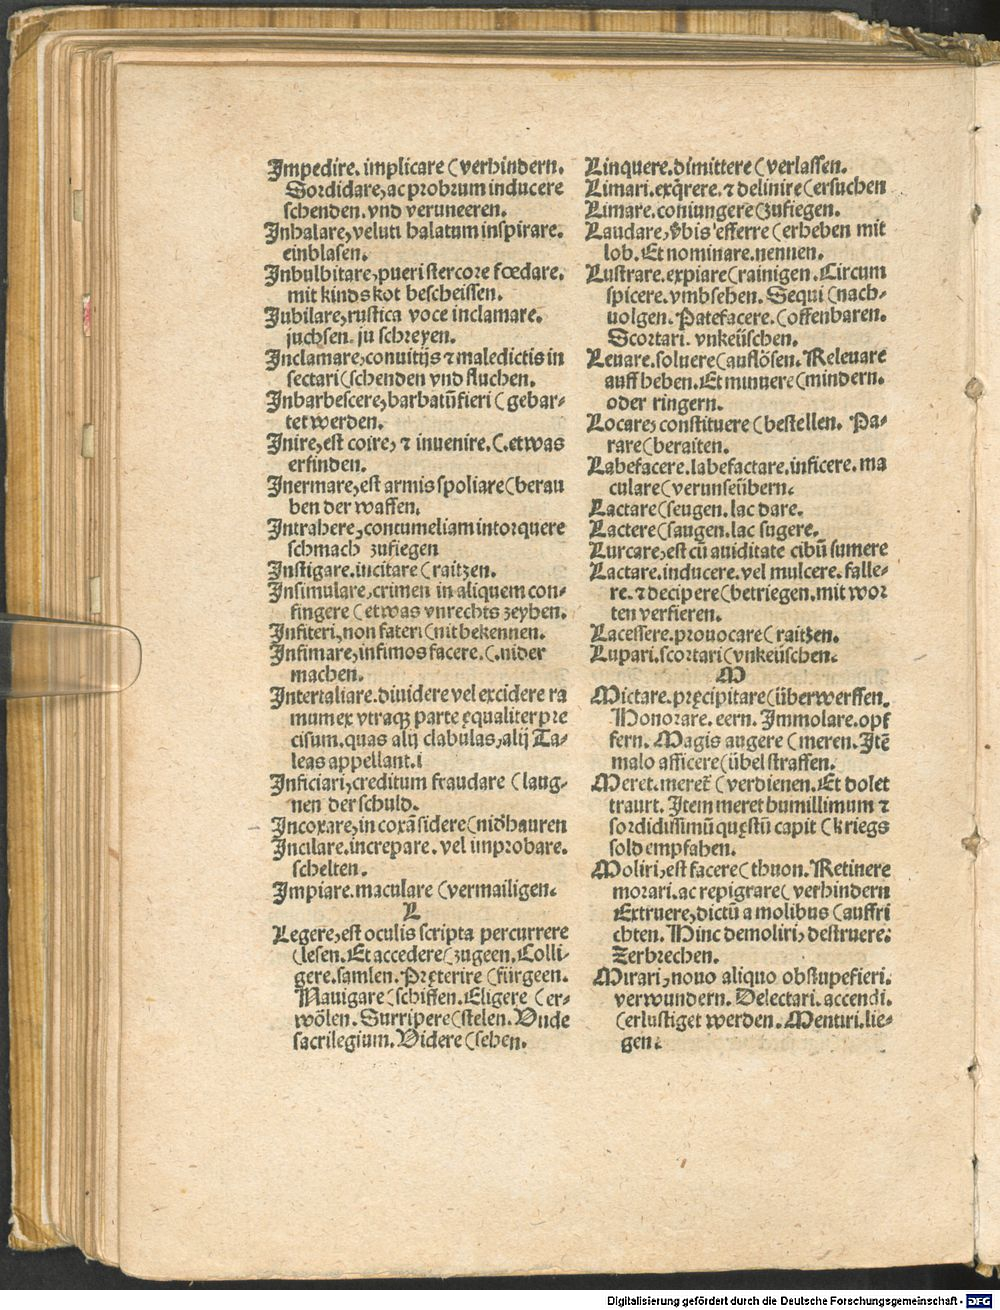 Impedire. implicare (verhindern.
Sordidare, ac probrum inducere
schenden. vnd veruneeren.
Inhalare, veluti halatum inspirare.
einblasen.
Inbulbitare, pueri stercore fœdare.
mit kinds kot bescheissen.
Jubilare, rustica voce inclamare.
juchsen. ju schreyen.
Inclamare, conuitijs ⁊ maledictis in
sectari (schenden vnd fluchen.
Inbarbescere, barbatū fieri (gebar-
tet werden.
Inire, est coire, ⁊ inuenire. (.etwas
erfinden.
Inermare, est armis spoliare (berau
ben der waffen.
Intrahere, contumeliam intorquere
schmach zufiegen
Instigare. incitare (raitzen.
Insimulare, crimen in aliquem con-
fingere (etwas vnrechts zeyhen.
Infiteri, non fateri (nit bekennen.
Infimare, infimos facere. (.nider
machen.
Intertaliare. diuidere vel excidere ra
mum ex vtraqꝫ parte ęqualiter pre
cisum. quas alij clabulas, alij Ta-
leas appellant.
Inficiari, creditum fraudare (laug-
nen der schuld.
Incoxare, in coxā sidere (nidhauren
Incilare. increpare. vel improbare.
schelten.
Impiare. maculare (vermailigen.
L
Legere, est oculis scripta percurrere
(lesen. Et accedere (zugeen. Colli-
gere. samlen. Pręterire (fürgeen.
Nauigare (schiffen. Eligere (er-
wölen. Surripere (stelen. Vnde
sacrilegium. Videre (sehen.
Linquere. dimittere (verlassen.
Limari. exq̄rere. ⁊ delinire (ersuchen
Limare. coniungere (zufiegen.
Laudare, efferre (erheben mit
lob. Et nominare. nennen.
Lustrare. expiare (rainigen. Circum
spicere. vmbsehen. Sequi (nach-
uolgen. Patefacere. (offenbaren.
Scortari. vnkeüschen.
Leuare. soluere (auflösen. Releuare
auff heben. Et minuere (mindern.
oder ringern.
Locare, constituere (bestellen. Pa-
rare (beraiten.
Labefacere. labefactare. inficere. ma
culare (verunseübern.
Lactare (seugen. lac dare.
Lactere (saugen. lac sugere.
Lurcare, est cū auiditate cibū sumere
Lactare. inducere. vel mulcere. falle-
re. ⁊ decipere (betriegen. mit wor
ten verfieren.
Lacessere. prouocare (raitzen.
Lupari. scortari (vnkeüschen.
M
Mictare. pręcipitare (überwerffen.
Honorare. eern. Immolare. opf
fern. Magis augere (meren. Itē
malo afficere (übel straffen.
Meret. meret᷑ (verdienen. Et dolet
traurt. Item meret humillimum ⁊
sordidissimū quęstū capit (kriegs
sold empfahen.
Moliri, est facere (thuon. Retinere
morari. ac repigrare (verhindern
Extruere, dictū a molibus (auffri
chten. Hinc demoliri, destruere:
Zerbrechen.
Mirari, nouo aliquo obstupefieri.
verwundern. Delectari. accendi.
(erlustiget werden. Mentiri. lie-
gen.
Digitalisierung gefördert durch die Deutsche Forschungsgemeinschaft - DFG